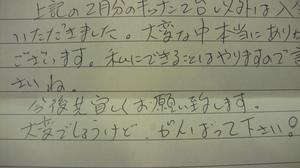 上記の2月分のキッチン2台以外は入金
いただきました。大変な中本当にありが
ございます。私にできることはやりますので言
さいね。
今後共宜しくお願い致します。
大変でしょうけど、がんばって下さい!